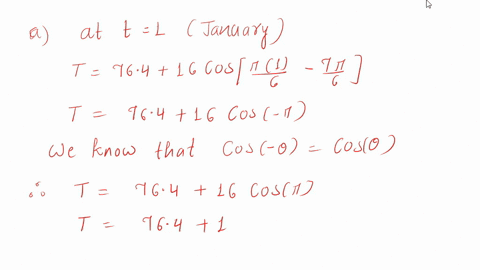 a) at t=1 (January)
T = 76.4 + 16 Cos[π(1)/6 - 7π/6]
T = 76.4 + 16 Cos(-π)
We know that Cos(-θ) = Cos(θ)
∴ T = 76.4 + 16 Cos(π)
T = 76.4 + 1